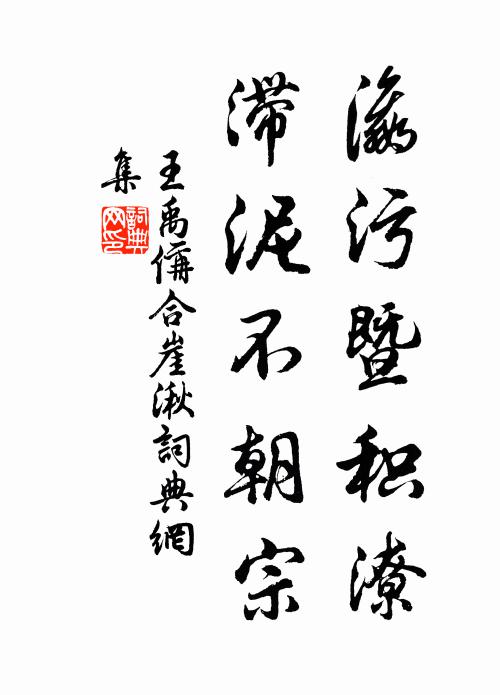 瀛污暨积潦
滞泥不朝宗
王禹偁合崖湫詞典網
集
詞典网印